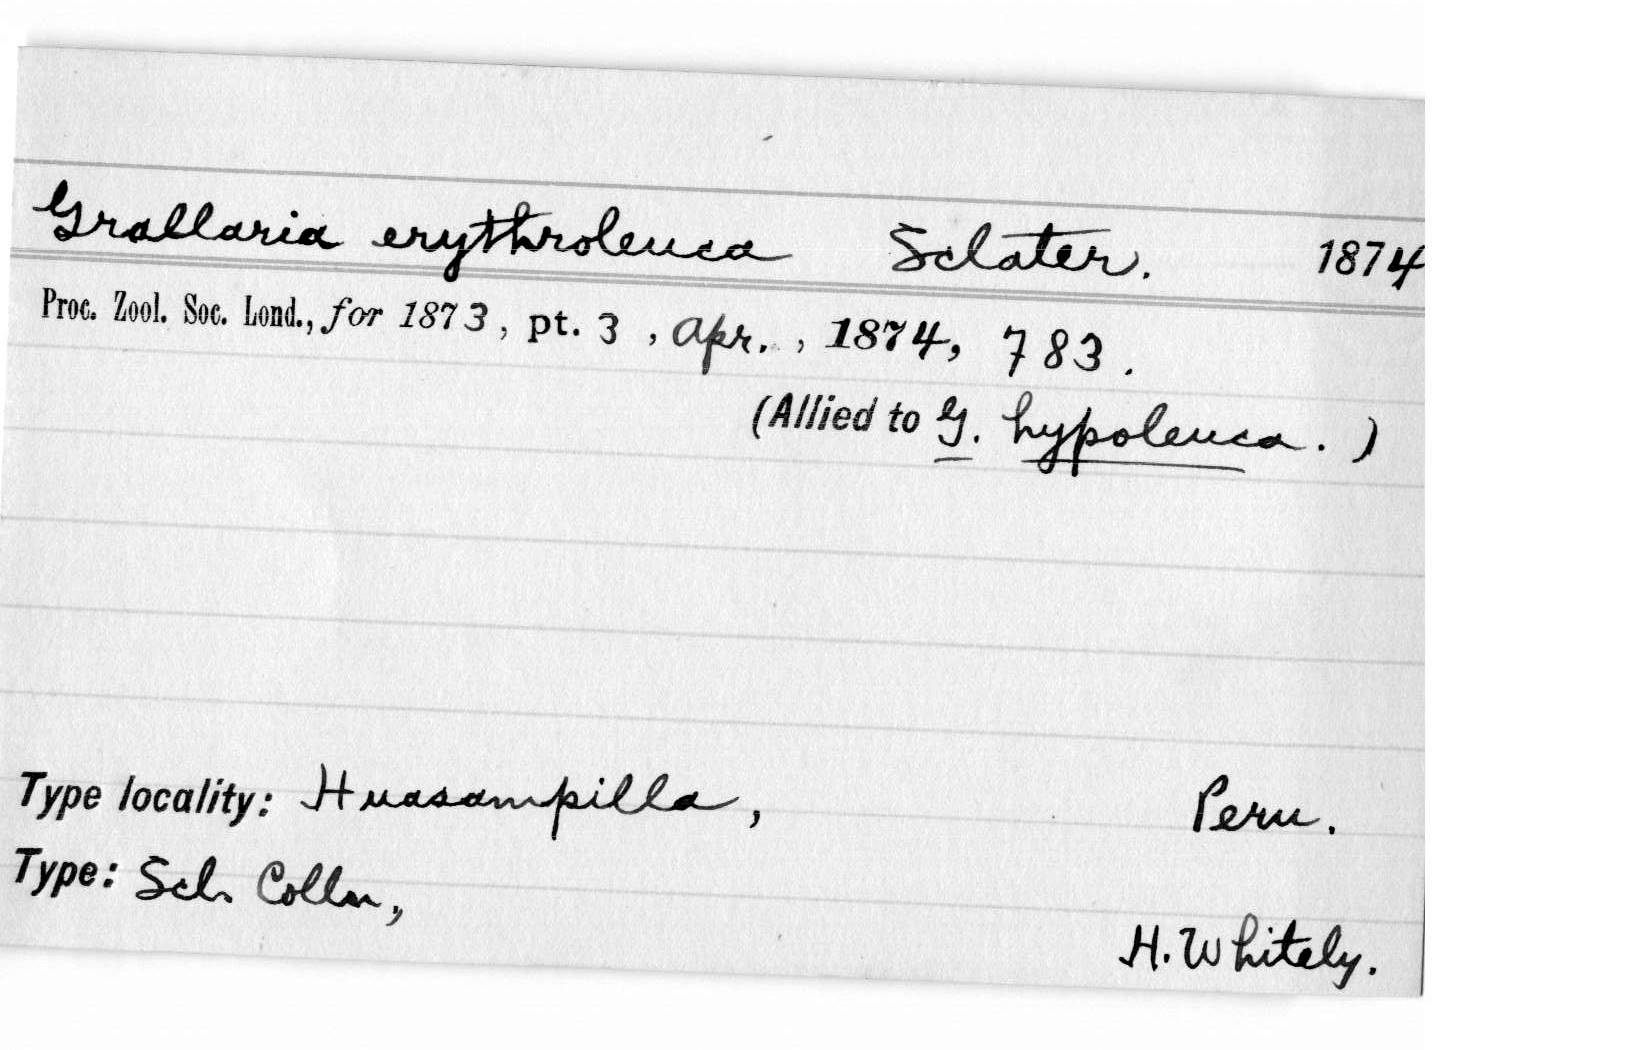 Grallaria erythroleuca Sclater. 1874
Proc. Zool. Soc. Lond., for 1873, pt. 3, Apr., 1874, 783.
(Allied to G. hypoleuca.)
Type locality: Huasampilla, Peru.
Type: Scl. Colln,
H. Whitely.